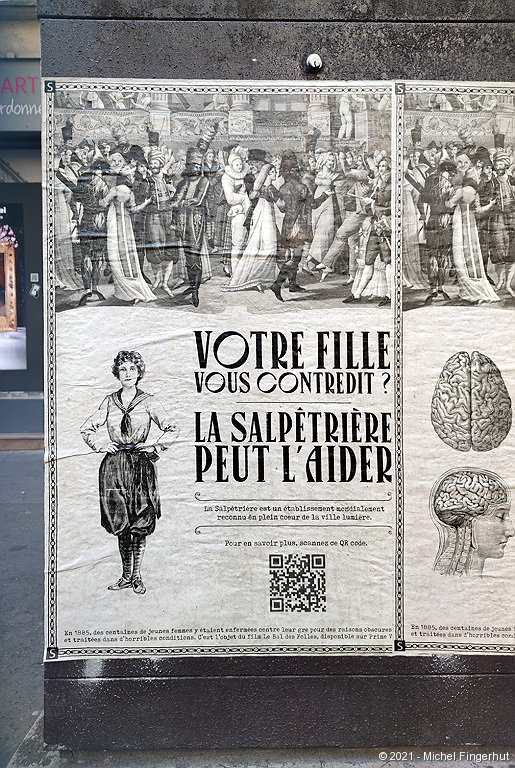 ART
S
S
VOTRE FILLE
VOUS CONTREDIT ?
LA SALPÊTRIÈRE
PEUT L'AIDER
La Salpêtrière est un établissement mondialement
reconnu en plein coeur de la ville lumière.
Pour en savoir plus, scannez ce QR code.
En 1885, des centaines de jeunes femmes y étaient enfermées contre leur gré pour des raisons obscures
et traitées dans d'horribles conditions. C'est l'objet du film Le Bal des Folles, disponible sur Prime V
En 1885, des centaines de jeunes
et traitées dans d'horribles condit
S
S
© 2021 - Michel Fingerhut